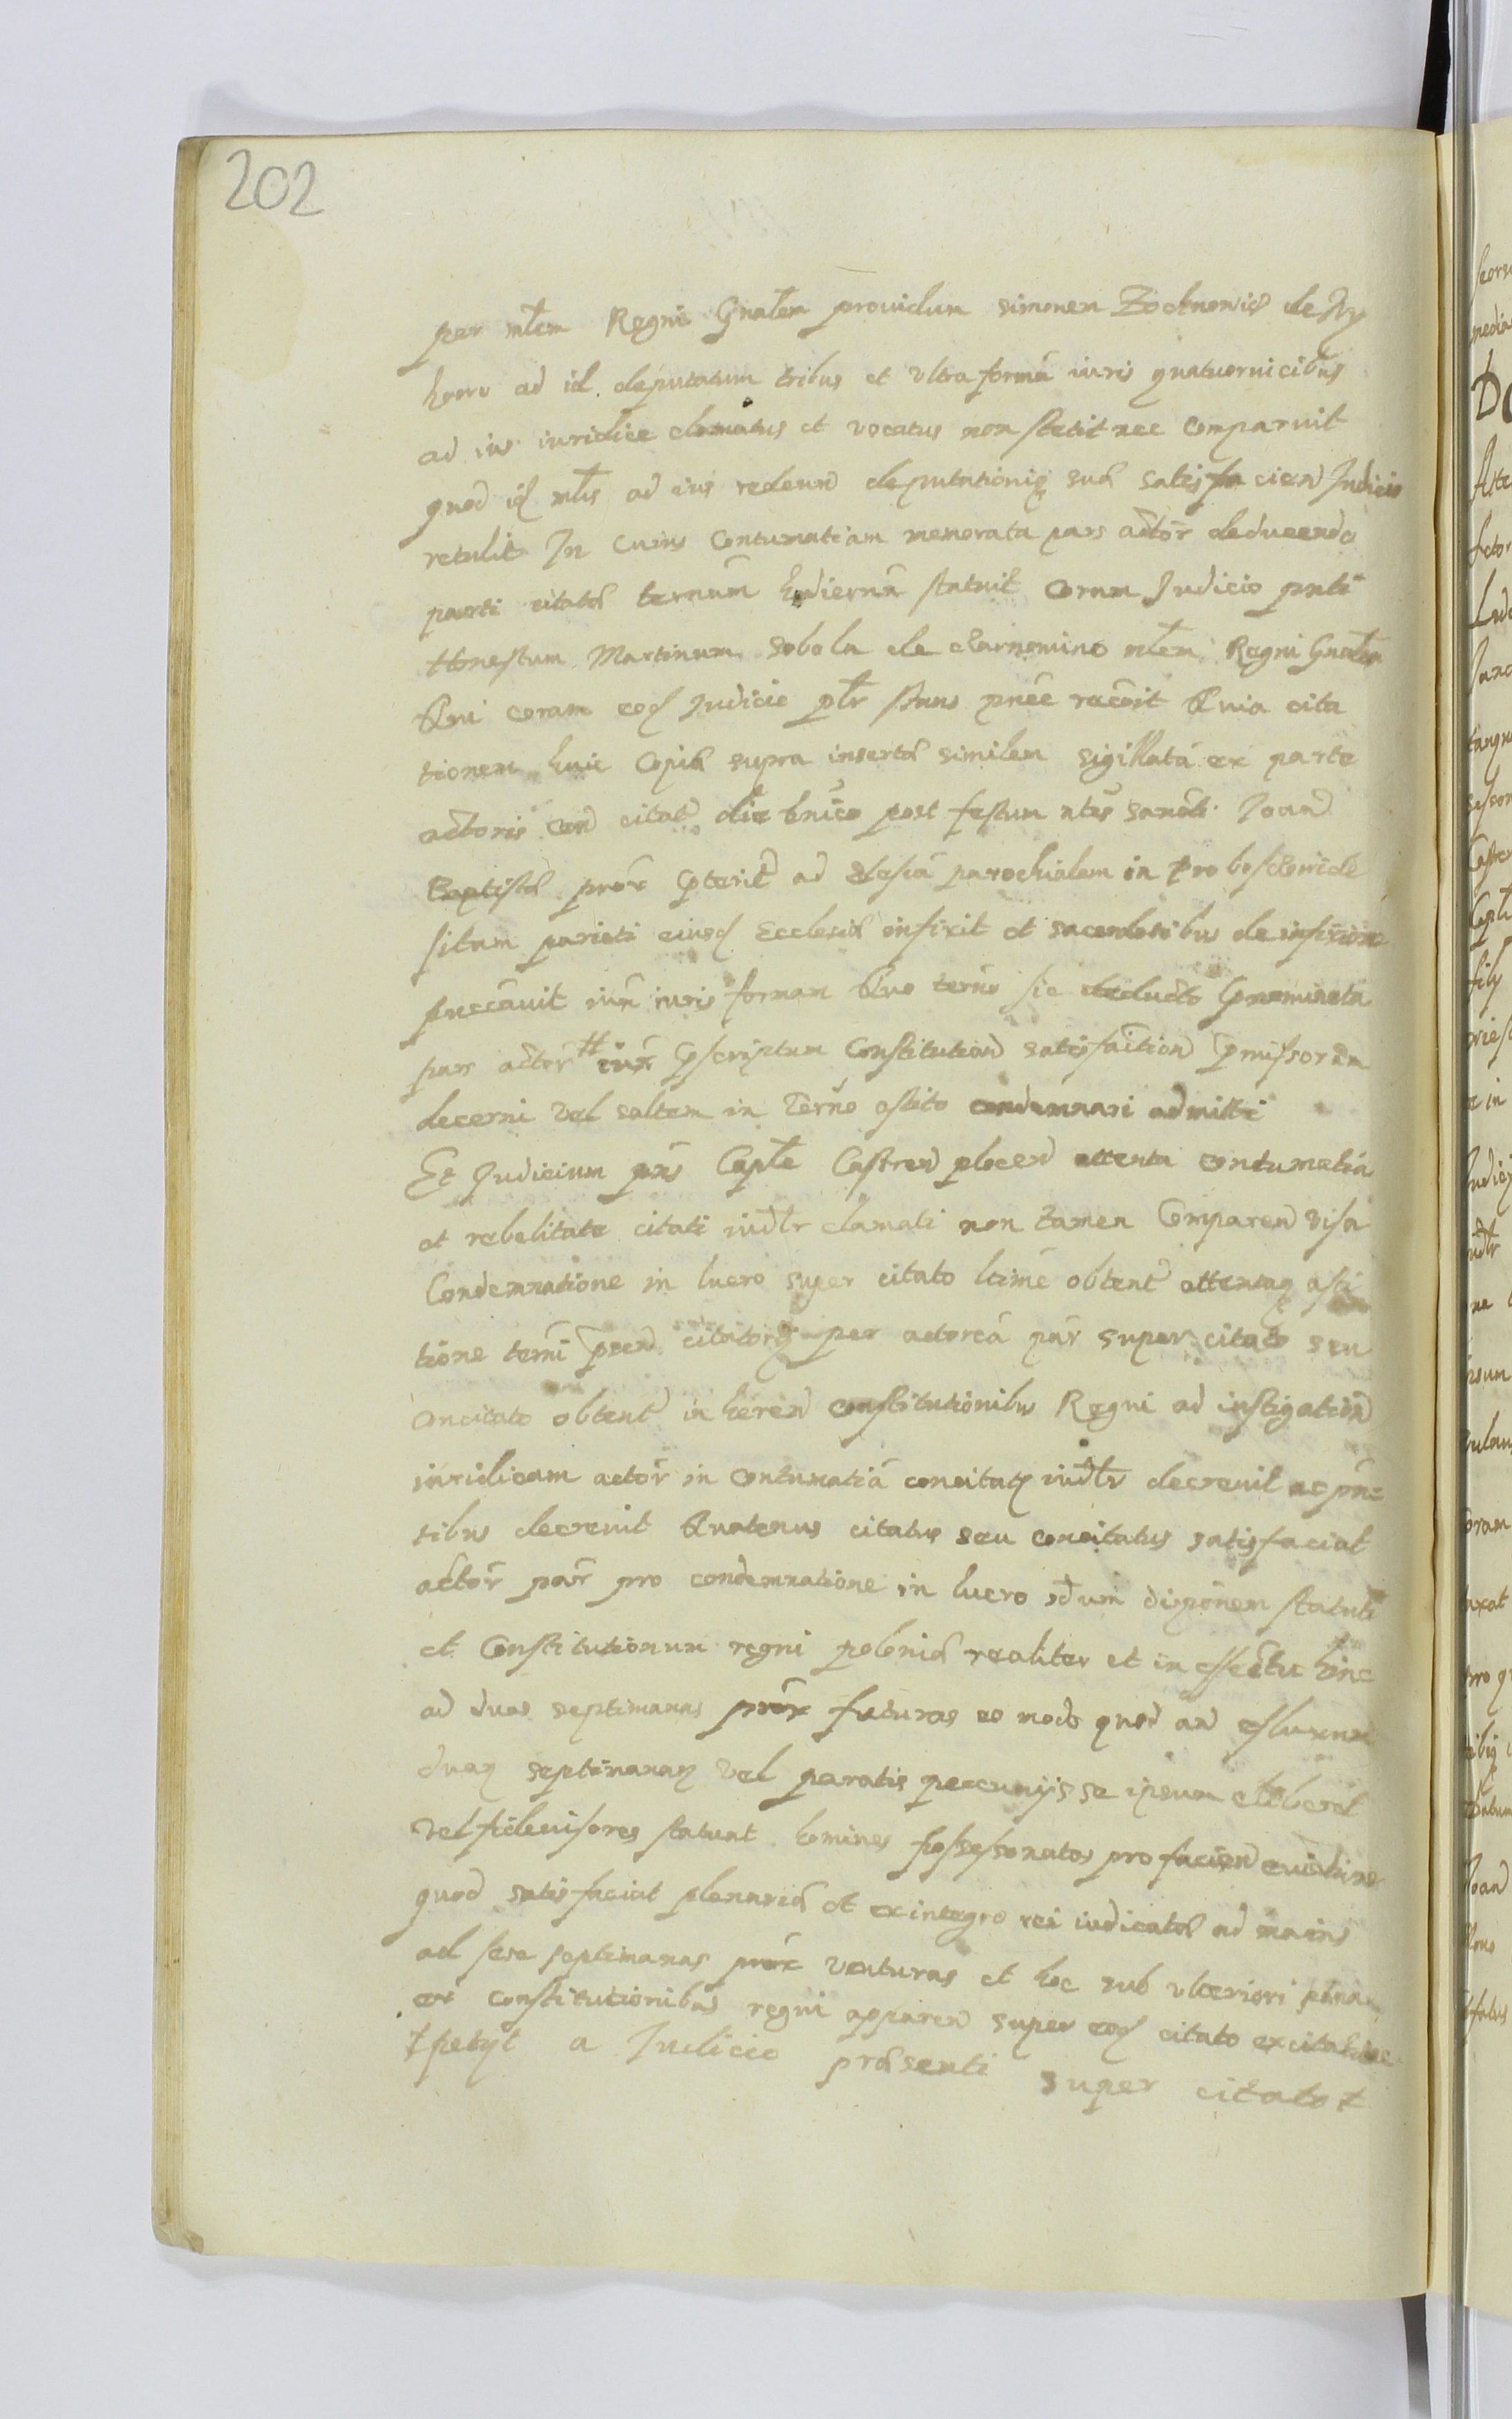 202
per mlem Regni Gnalem prouidum simonem de
ad id deputatum tribus et vltra formã iuris quatuornicibus
ad ius iuridice clamatus et vocatus non stetit nec Comparuit
quod iq mlis ad ius redeund deputationiq suæ satisfaciend Judicio
retulit In Cuius Contumatiam memorata pars actor deducendo
parti citatæ ternum hodiernũ statuit Coram Judicio pnti
Honestum Martinum Sobola de mlem Regni Gnalem
Qui coram eoq Judicio plr stans pnee recõit Quia cita
tionem huic Copiæ supra insertæ similem sigillatã ex parte
actoris citat die post festum ntis sancti Joand
Baptistæ prox pterit ad parochialem in
sitam parieti eiusq Ecclesiæ infixit et sacerdotibus de infixione
iux iuris formam Quo terno sic deducto pnominata
pars actor # iux pscriptum Constitution satisfaction pmissorum
decerni vel saltem in Terno astito condemnari admitti
Et Judicium pns Caple Castren attenta contumatia
et rebelitate citati iudlr clamati non tamen Comparen visa
Condemnatione in lucro super citato ltime obtent attentaq asti
tione terni per actoreã par super citato seu
concitato obtent inheren constitutionibus Regni ad instigation
iuridicam actor in Contumatiã concitati iudlr decreuit ac pñ=
tibus decreuit Quatenus citatus seu concitatus satisfaciat
actor par pro condemnatione in lucro sdum dispõnem statuti
et Constitutionum regni poloniæ realiter et in effectu hinc
ad duas septimanas prox futuras eo modo quod an efluxum
duaq septimanaq vel paratis peccunijs se ipsum
vel fideiusores statuat homines possesionatos pro facien
quod satisfaciat plenariæ et ex integro rei iudicatæ ad maius
ad sex septimanas prox venturas et hoc sub vlteriori pæna
ex constitutionibus regni apparen super eoq citato
# petijt a Judicio præsenti super citato #